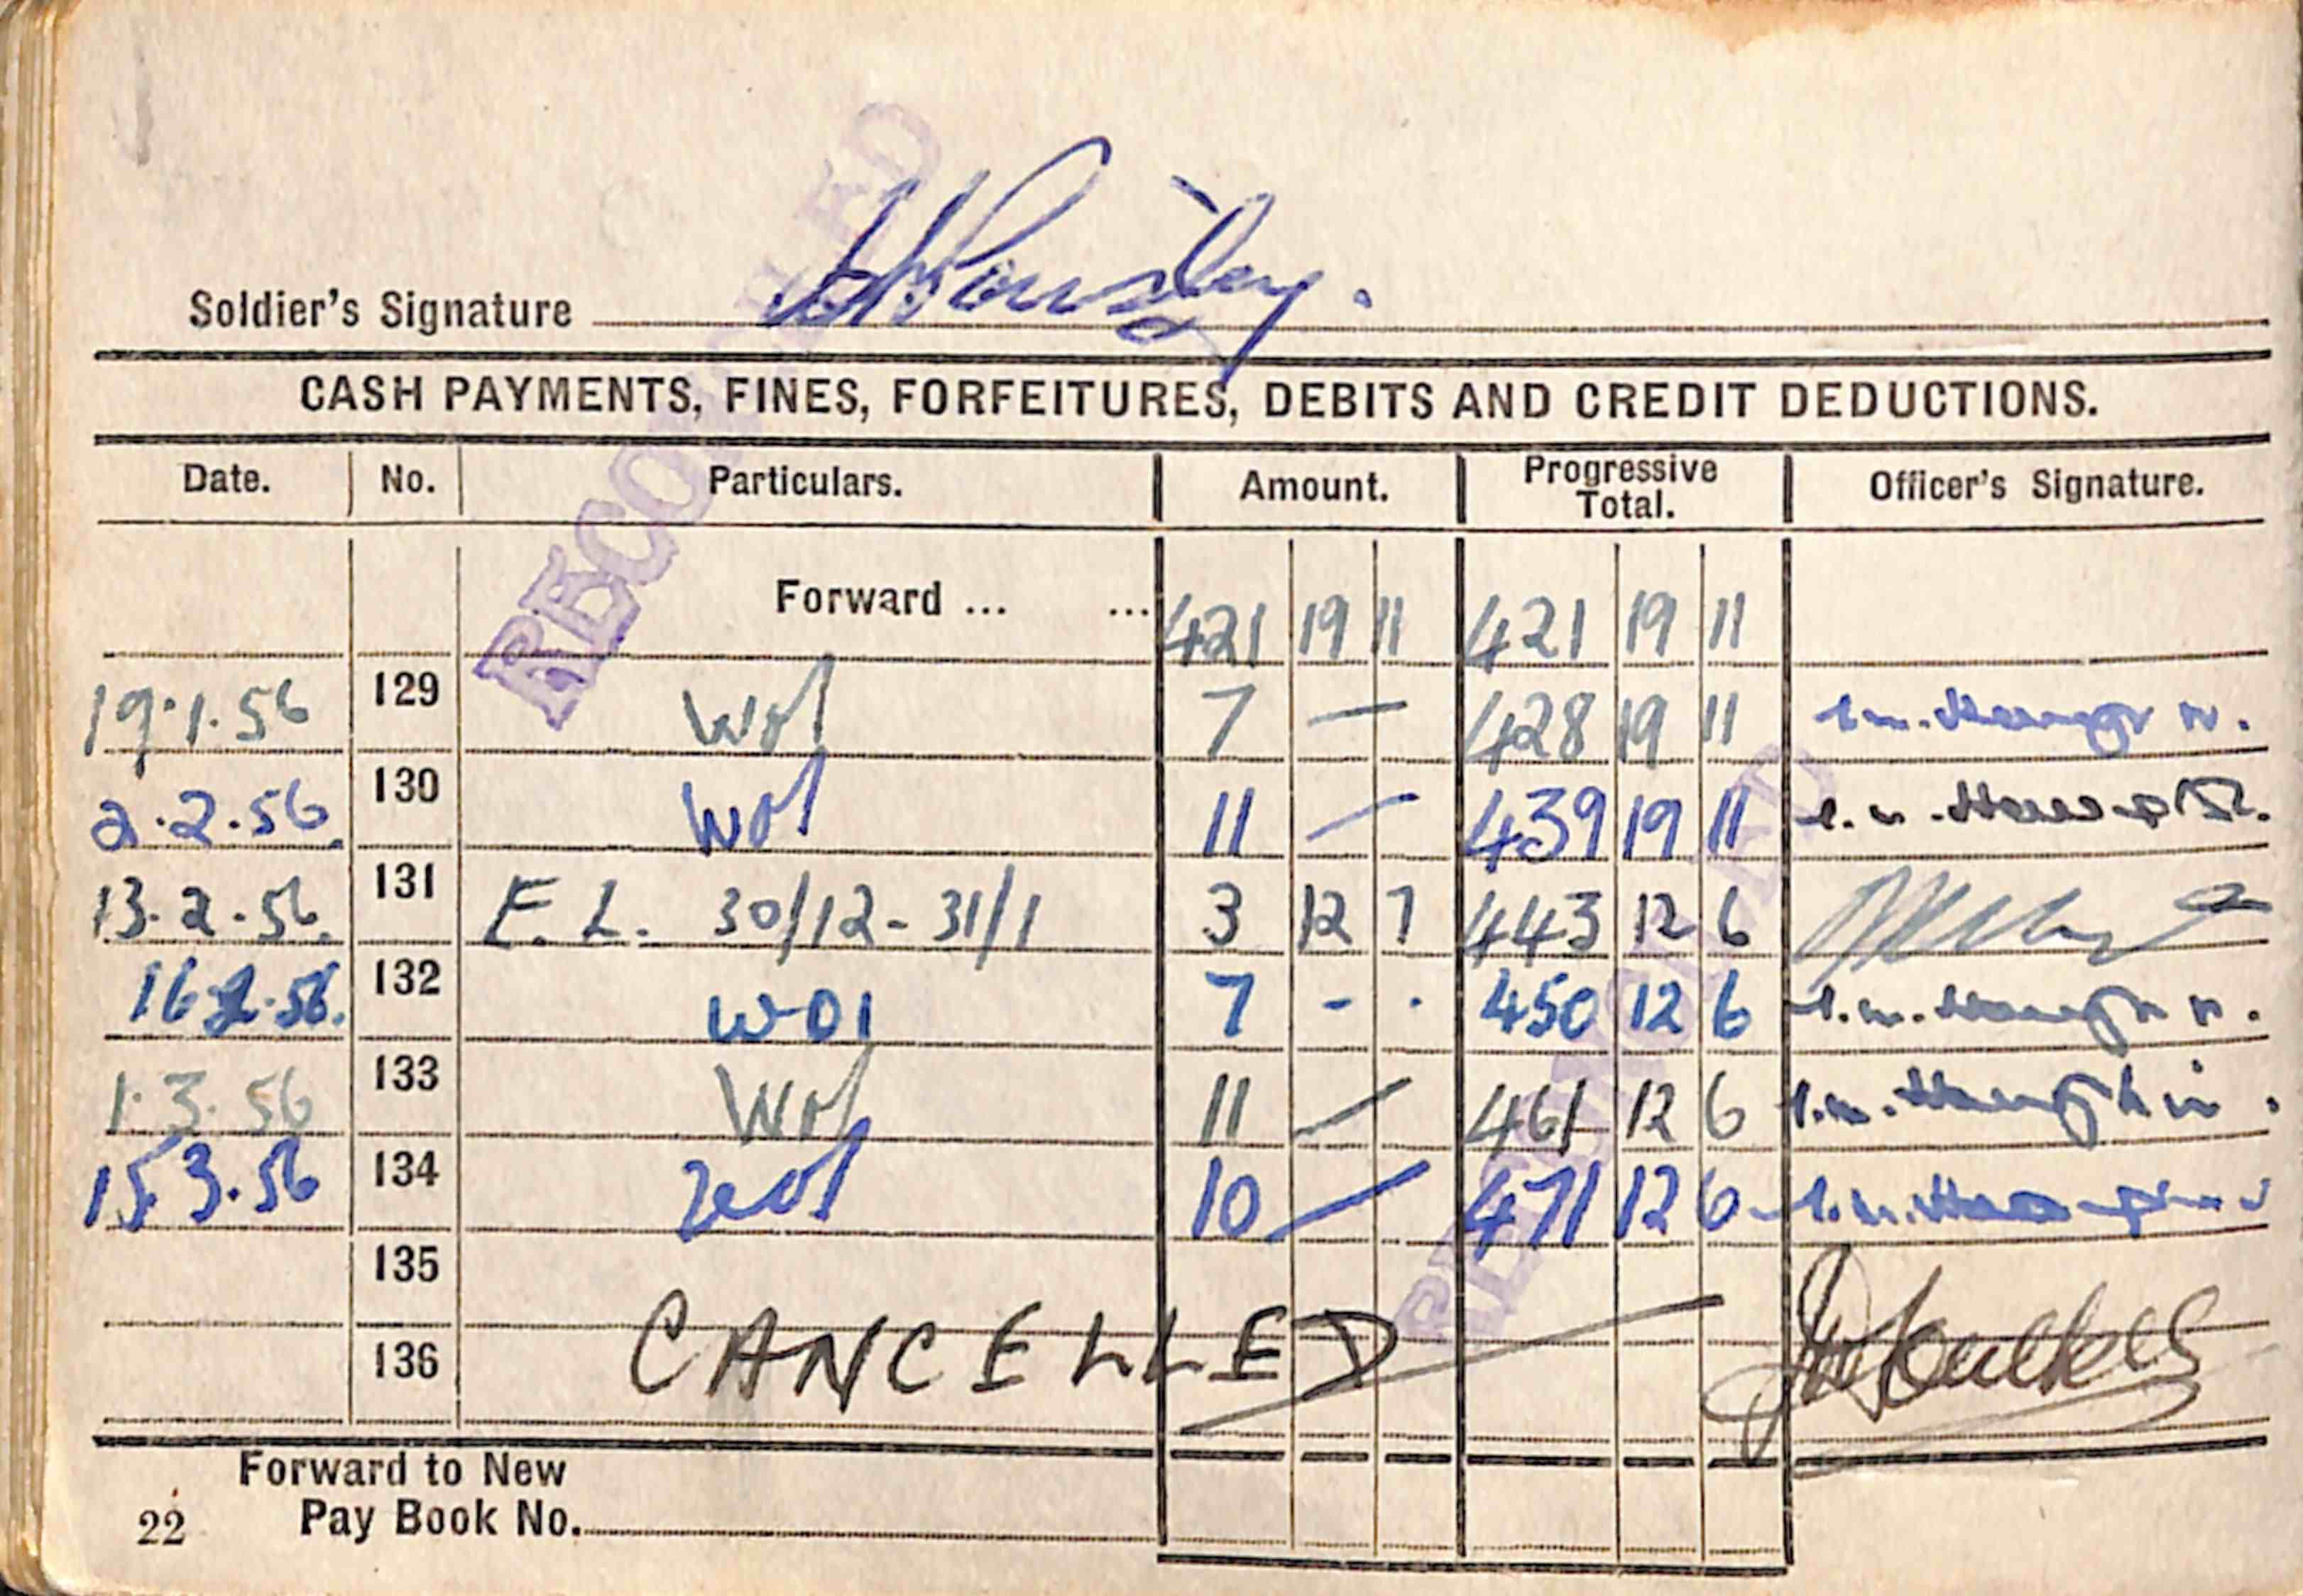 Soldier's Signature
CASH PAYMENTS, FINES, FORFEITURES, DEBITS AND CREDIT DEDUCTIONS.
Date. No. Particulars. Amount. Progressive Total. Officer's Signature.
Forward ... ... 421 19 11 421 19 11
19.1.56 129 Wol 7 — 428 19 11
2.2.56. 130 Wol 11 — 439 19 11
13.2.56. 131 E.L. 30/12-31/1 3 12 7 443 12 6
16.2.56. 132 WOl 7 - . 450 12 6
1.3.56 133 Wol 11 — 461 12 6
15.3.56 134 Wol 10 — 471 12 6
135
136 CANCELLED
Forward to New
Pay Book No.
22